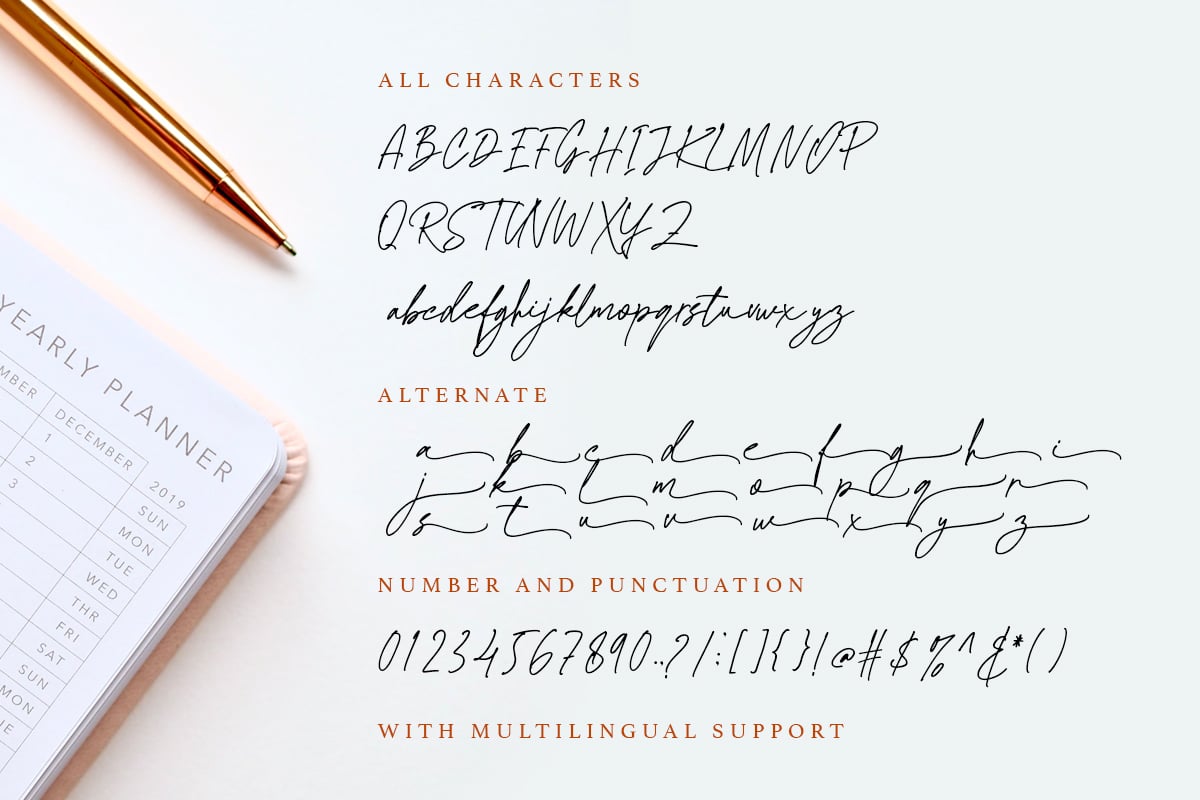 ALL CHARACTERS
ABCDEFGHIJKLMNOP
QRSTUVWXYZ
abcdefghijklmopqrstuvwxyz
ALTERNATE
a b c d e f g h i
j k l m o p q r
s t u v w x y z
NUMBER AND PUNCTUATION
01234567890..?/:[]{}!@#$%^&*()
WITH MULTILINGUAL SUPPORT
YEARLY PLANNER
MBER DECEMBER 2019
1 SUN
2 MON
3 TUE
WED
THR
FRI
SAT
SUN
MON